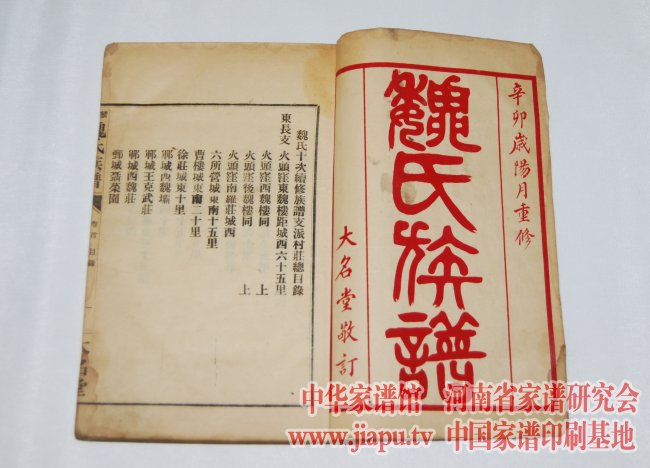 辛卯歲陽月重修
魏氏族譜
大名堂敬訂
魏氏十次續修族譜支派村莊總目錄
東長支 火頭窪東魏樓距城西六十五里
火頭窪西魏樓同 上
火頭窪後魏樓同 上
火頭窪南羅莊城西
六所營城東南十五里
曹樓城東南二十里
徐莊城東十里
鄆城西魏
鄆城王克武莊
鄆城西魏莊
城菜園
魏氏族譜 卷首 目錄
中华家谱馆 河南省家谱研究会
www.jiapu.tv 中国家谱印刷基地